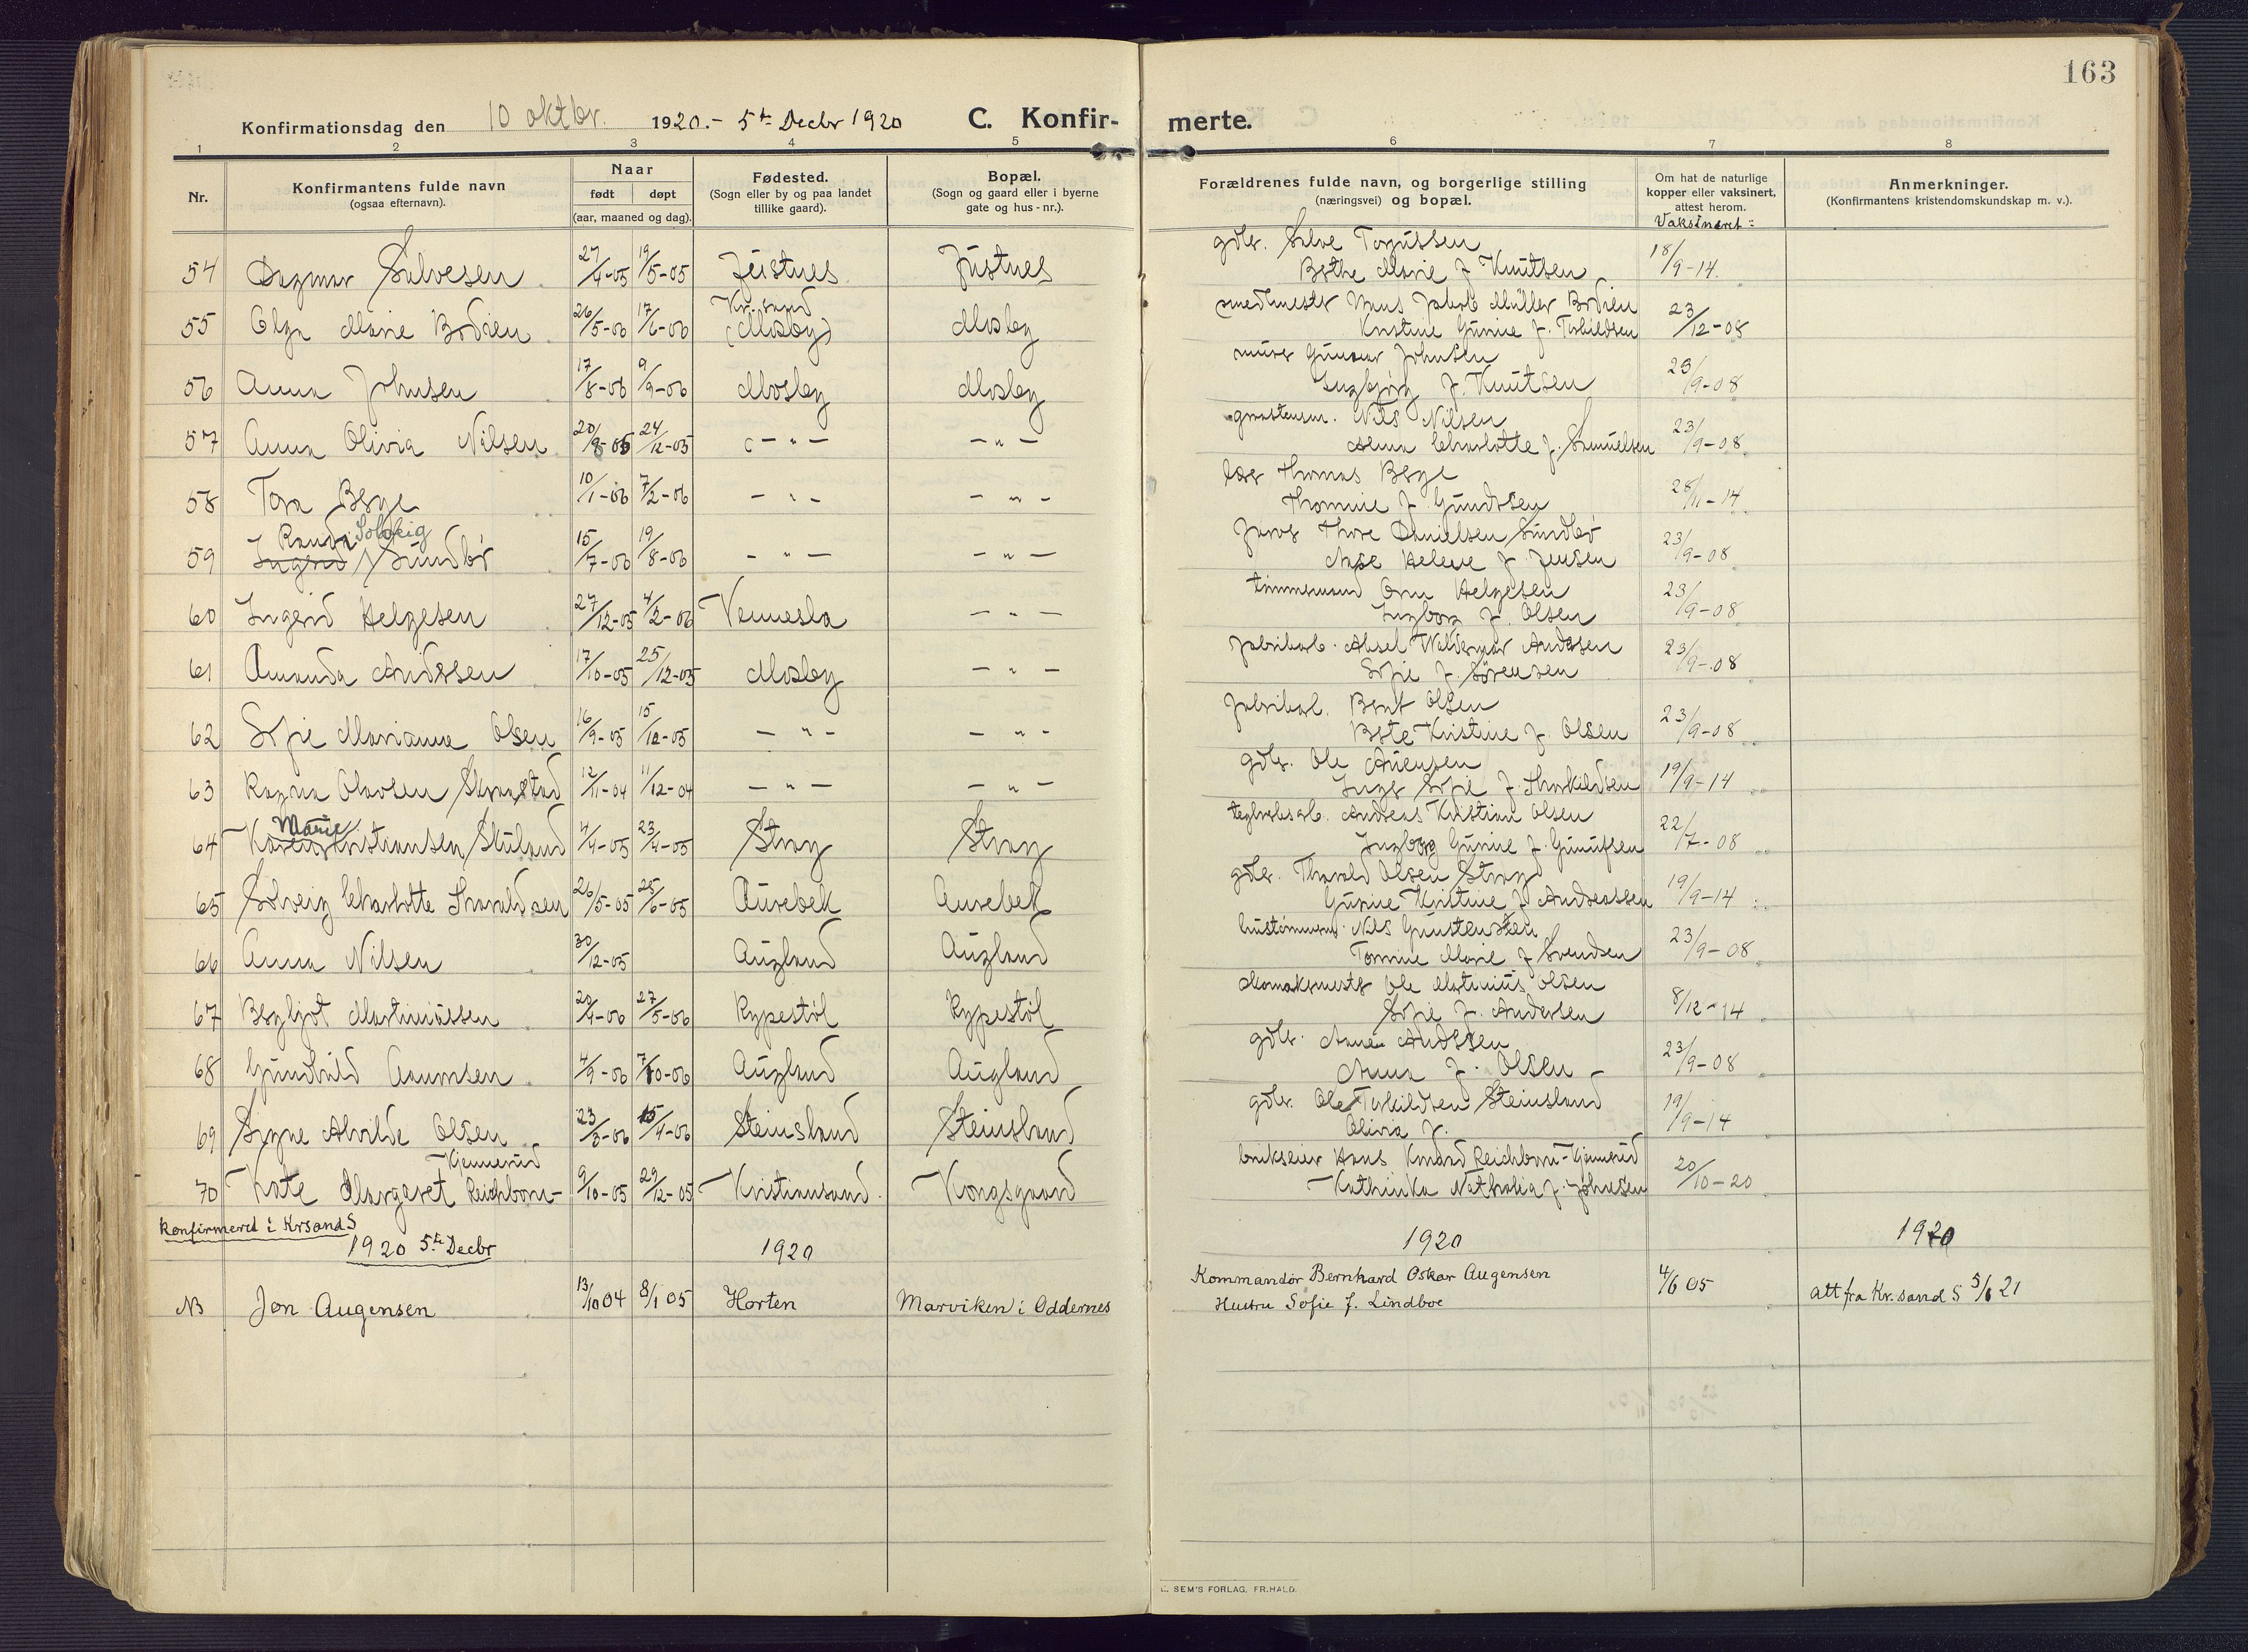 163
Konfirmationsdag den 10 oktbr. 1920. - 5te Decbr 1920 C. Konfir- merte.
1 2 3 4 5 6 7 8
Nr. Konfirmantens fulde navn (ogsaa efternavn). Naar født døpt (aar, maaned og dag). Fødested. (Sogn eller by og paa landet tillike gaard). Bopæl. (Sogn og gaard eller i byerne gate og hus-nr.). Forældrenes fulde navn, og borgerlige stilling (næringsvei) og bopæl. Om hat de naturlige kopper eller vaksinert, attest herom. Anmerkninger. (Konfirmantens kristendomskundskap m. v.).
Vaksineret:
gdbr. Salve Torjussen
54 Dagmar Salvesen 27/4-05 19/5-05 Justnes Justnes Berthe Marie f. Knutsen 18/9-14.
Kr.sand smedmester Hans Jakob Müller Brovien
55 Olga Marie 26/5-06 17/6-06 (Mosby) Mosby Kristine Gurine f. Torkildsen 23/12-08
murer Gunnar Johnsen
56 Anna Johnsen 17/8-06 9/9-06 Mosby Mosby Ingbjørg f. Knutsen 23/9-08
Nils Nilsen
57 Anna Olivia Nilsen 20/8-05 24/12-05 - " - - " - Anna Charlotte f. Samuelsen 23/9-08
lær Thomas Berge
58 Tora Berge 10/1-06 7/2-06 - " - - " - Thomine f. Gundersen 28/11-14
Randi Solveig Thore Danielsen Sundbø
59 Ingrid Sundbø 15/7-06 19/8-06 - " - - " - Aase Helene f. Jensen 23/9-08
tømmermand Orm Helgesen
60 Ingrid Helgesen 27/12-05 4/2-06 Vennesla - " - Ingborg f. Olsen 23/9-08
fabrikarb. Aksel Valdemar Andersen
61 Amanda Andersen 17/10-05 25/12-05 Mosby - " - Sofie f. Sørensen 23/9-08
fabrikarb. Bernt Olsen
62 Sofie Marianne Olsen 16/9-05 15/12-05 - " - - " - Berte Kristine f. Olsen 23/9-08
gdbr. Ole Auensen
63 Ragna Olavsen 12/11-04 11/12-04 - " - - " - Inger Sofie f. Thorkildsen 19/9-14
Marie teglverksarb. Andreas Kristian Olsen
64 Karen Kristiansen Skuland 4/4-05 23/4-05 Stray Stray Ingborg Gurine f. Gunufsen 22/7-08
gdbr. Tharald Olsen Stray
65 Solveig Charlotte Tharaldsen 26/5-05 25/6-05 Aurebek Aurebek Gurine Kristine f. Andreassen 19/9-14
hustømmerm. Nils
66 Anna Nilsen 30/12-05 Augland Augland Tomine Marie f. Svendsen 23/9-08
skomakermester Ole Martinius Olsen
67 Bergljot Martiniussen 29/4-06 27/5-06 Rypestøl Rypestøl Sofie f. Andersen 8/12-14
gdbr. Andersen
68 Gundhild Aanunsen 4/9-06 7/10-06 Augland Augland Anna f. Olsen 23/9-08
gdbr. Ole Torkildsen Steinsland
69 Signe Alvilde Olsen 23/3-06 15/4-06 Steinsland Steinsland Olivia f. 19/9-14
Kjennerud brukseier Hans Reichborn-Kjennerud
70 Kate Margaret Reichborn- 9/10-05 29/12-05 Kristiansand. Kongsgaard Kathinka Nathalia f. Johnsen 20/10-20
konfirmeret i Krsand S
1920 5te Decbr 1920 1920 1920
Kommandør Bernhard Oskar Augensen
NB Jon Augensen 13/10 04 8/1 05 Horten Marviken i Oddernes Hustru Sofie f. Lindboe 4/6 05 att fra Kr.sand S 5/6 21
E. SEM'S FORLAG, FR.HALD.